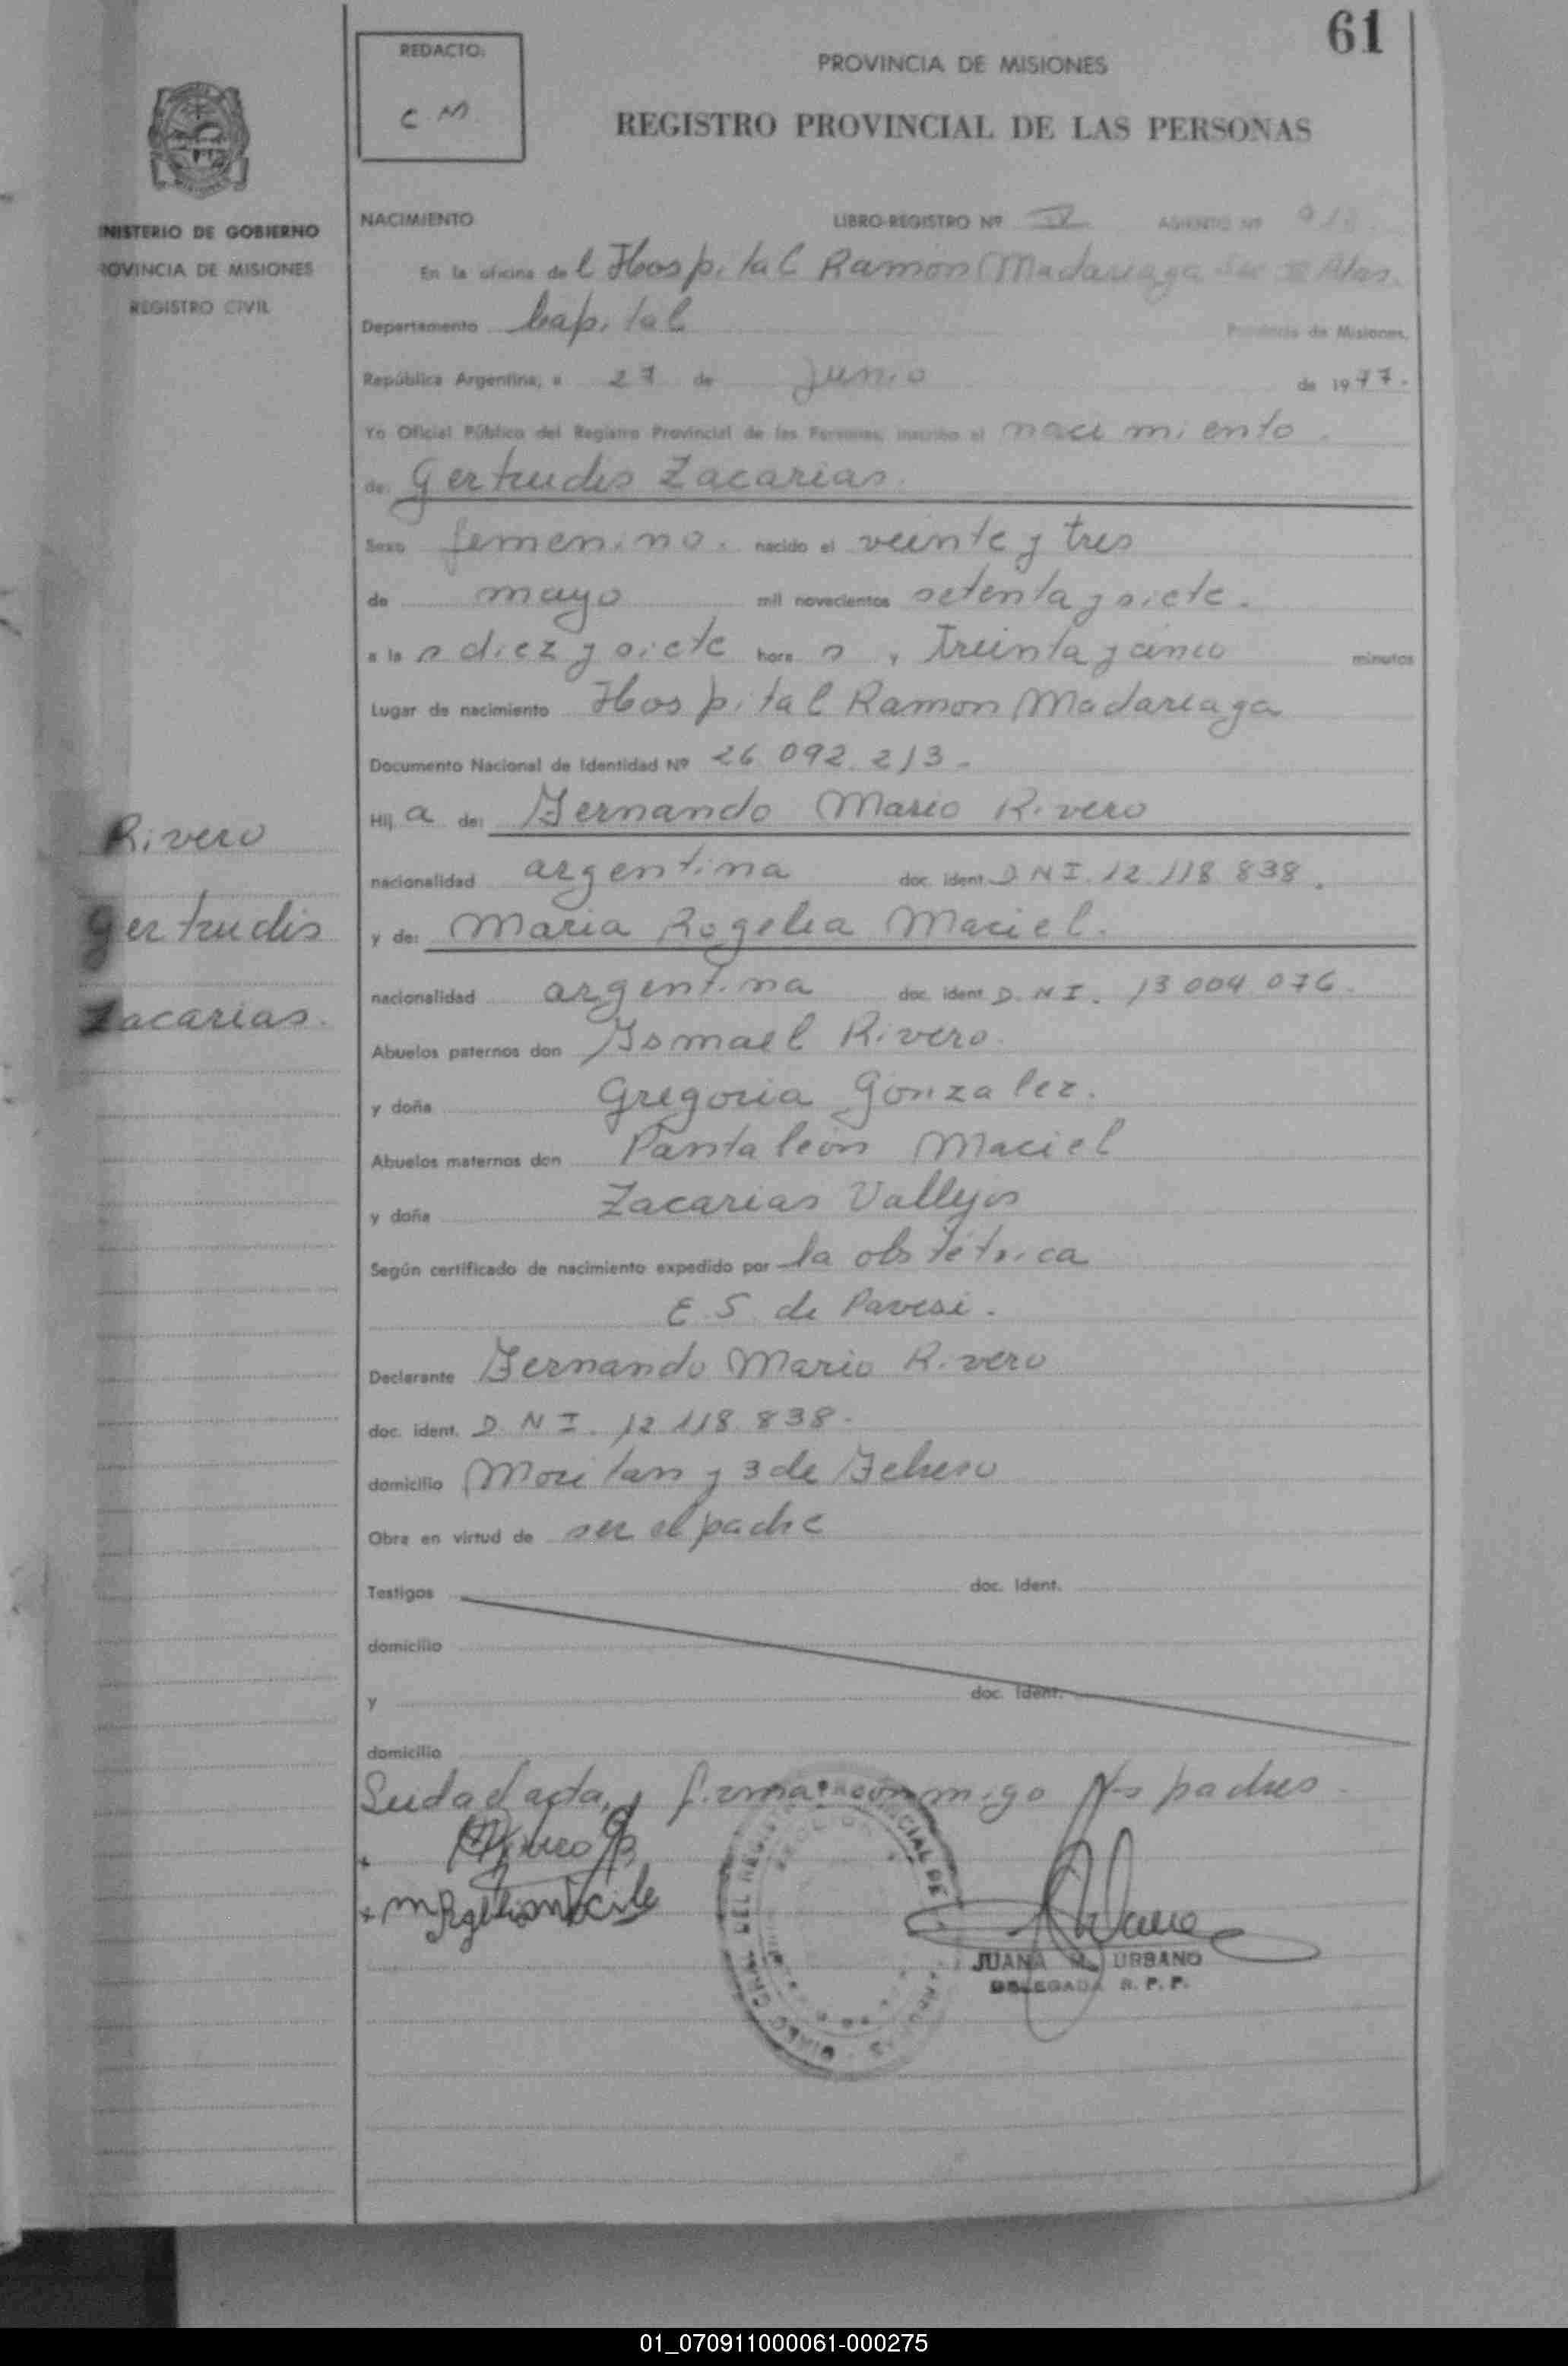 61
REDACTO:
C. M.
PROVINCIA DE MISIONES
REGISTRO PROVINCIAL DE LAS PERSONAS
INISTERIO DE GOBIERNO
ROVINCIA DE MISIONES
REGISTRO CIVIL
NACIMIENTO LIBRO-REGISTRO Nº IV ASIENTO Nº
En la oficina del Hospital Ramón Madariaga
Departamento Capital Provincia de Misiones,
República Argentina, a 27 de Junio de 1977.
Yo Oficial Público del Registro Provincial de las Personas, inscribo el nacimiento
de: Gertrudis Zacarias.
Sexo femenino. nacido el veinte y tres
de mayo mil novecientos setenta y siete.
a las diez y siete horas y treinta y cinco minutos
Lugar de nacimiento Hospital Ramon Madariaga
Documento Nacional de Identidad Nº 26 092 213.
Hija de: Fernando Mario Rivero
nacionalidad argentina doc. ident. D N I. 12 118 838.
y de: Maria Rogelia Maciel.
nacionalidad argentina doc. ident. D. N I. 13 004 076.
Abuelos paternos don Ismael Rivero.
y doña Gregoria Gonzalez.
Abuelos maternos don Pantaleón Maciel
y doña Zacarias Vallejos
Según certificado de nacimiento expedido por la obstétrica
E. S. de Pavesi.
Declarante Fernando Mario Rivero
doc. ident. D. N I. 12 118 838.
domicilio y 3 de Febrero
Obra en virtud de ser el padre
Testigos doc. Ident.
domicilio
y doc. Ident.
domicilio
Leida el acta, firman conmigo los padres.
JUANA M. URBANO
DELEGADA R. P. P.
Rivero
Gertrudis
Zacarias.
01_070911000061-000275